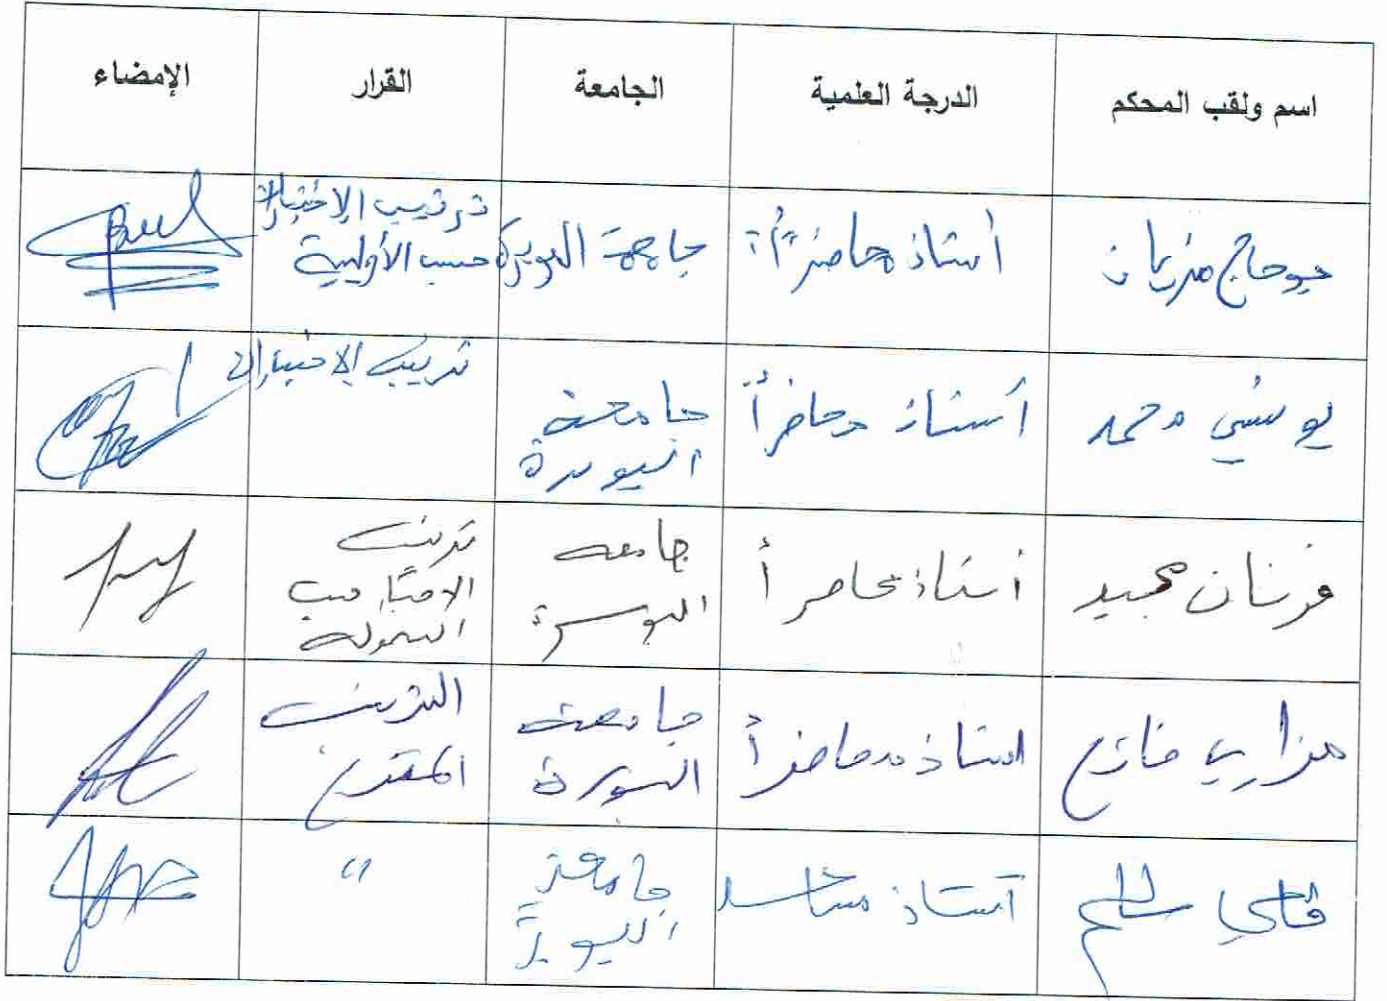 اسم ولقب المحكم الدرجة العلمية الجامعة القرار الإمضاء
بوحاج مزيان أستاذ محاضر أ جامعة البويرة ترتيب الاختبارات
حسب الأولية
يونسي محمد أستاذ محاضر أ جامعة ترتيب الاختبارات
البويرة
فرنان مجيد أستاذ محاضر أ جامعة ترتيب
البويرة الاختبار حسب
السهولة
مزاري فاتح استاذ محاضر أ جامعة الترتيب
البويرة المقترح
أستاذ جامعة "
البويرة